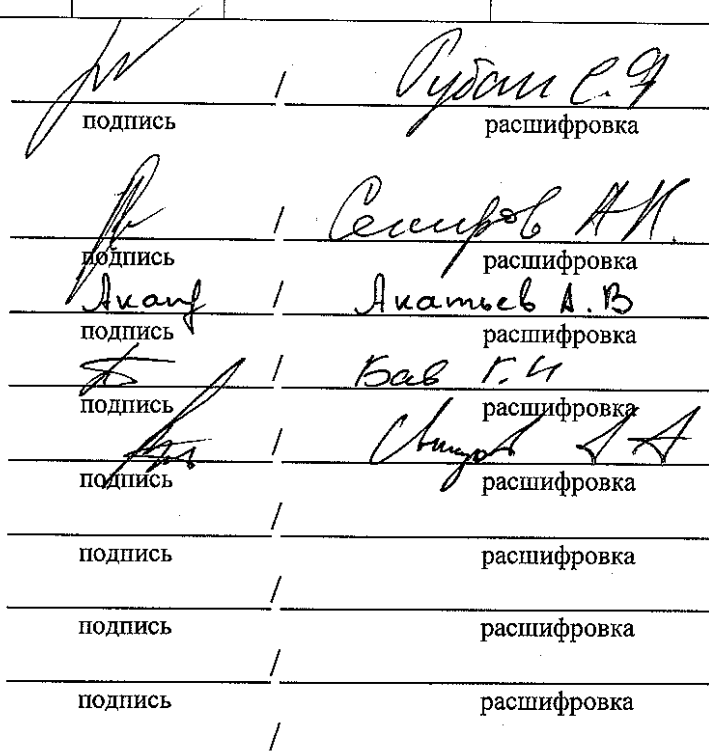 / Рубан С.Я
подпись расшифровка
/ А.И.
подпись расшифровка
Акат / Акатьев А.В
подпись расшифровка
/ Бав Г.И
подпись расшифровка
/ А А
подпись расшифровка
/
подпись расшифровка
/
подпись расшифровка
/
подпись расшифровка
/